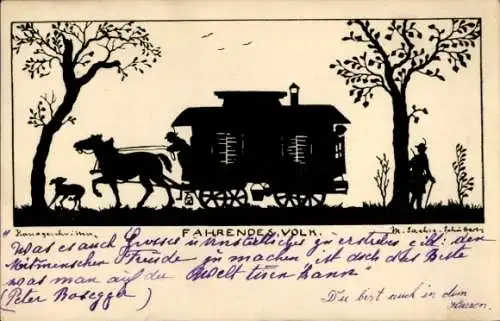 FAHRENDES VOLK.
M. Sachse-Schubert
Was es auch Grosses u. Unsterbliches zu erstreben gibt: den
Mitmenschen Freude zu machen ist doch das Beste
was man auf der Welt tuen kann"
(Peter Rosegger)
Du bist auch in dem